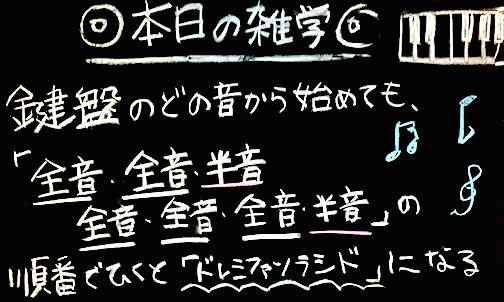 ◎本日の雑学◎
鍵盤のどの音から始めても、
「全音・全音・半音
全音・全音・全音・半音」の
順番でひくと「ドレミファソラシド」になる